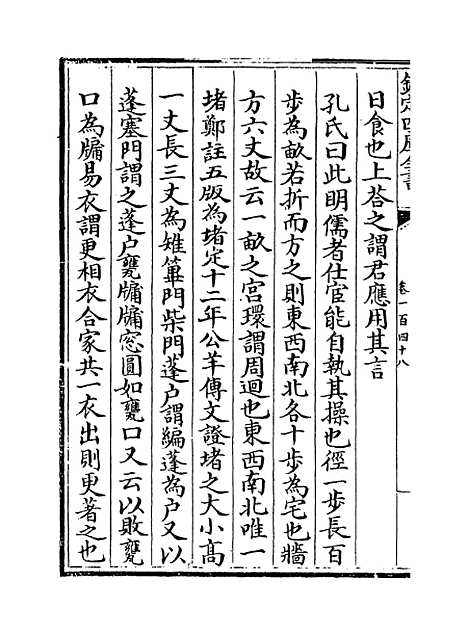 欽定四庫全書
卷一百四十八
日食也上荅之謂君應用其言
孔氏曰此明儒者仕宦能自執其操也徑一步長百
步為畝若折而方之則東西南北各十步為宅也牆
方六丈故云一畝之宮環謂周迴也東西南北唯一
堵鄭註五版為堵定十二年公羊傳文證堵之大小髙
一丈長三丈為雉篳門柴門蓬户謂編蓬為户又以
蓬塞門謂之蓬户甕牖牖窓圓如甕口又云以敗甕
口為牖易衣謂更相衣合家共一衣出則更著之也